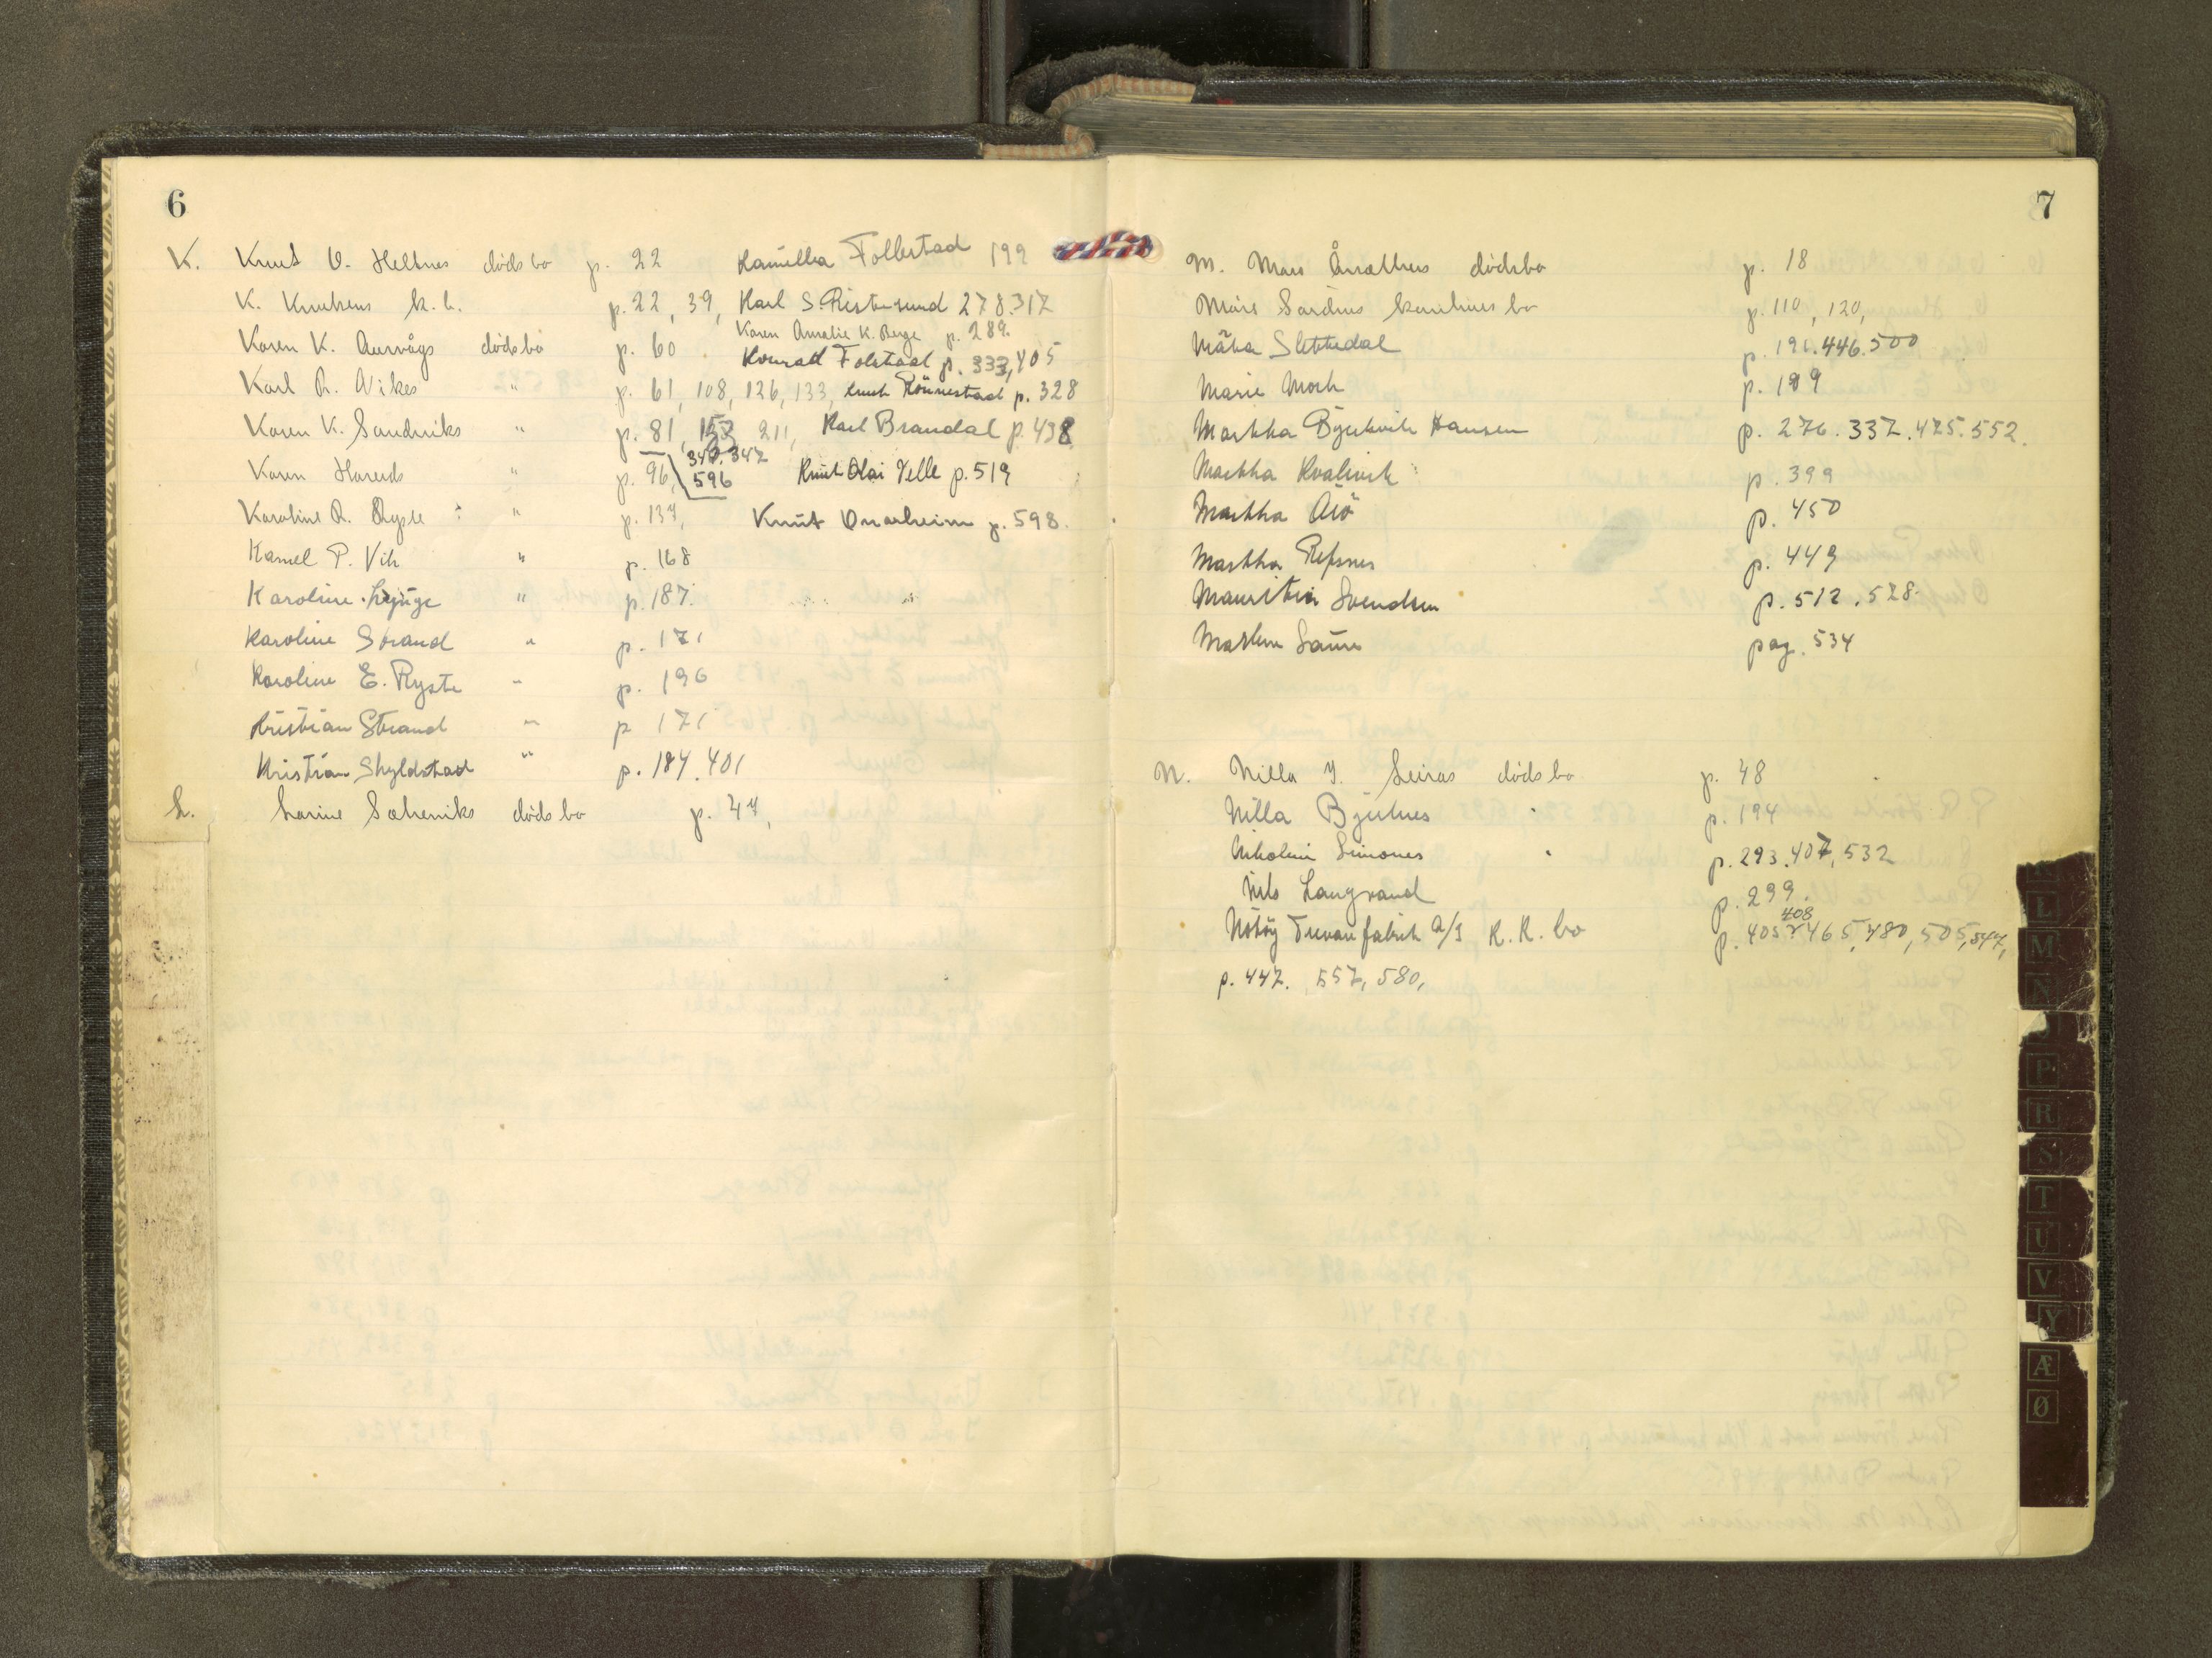 6
K. Knut O. Heltnes dødsbo p. 22 Kamilla Follestad 199
K. Knutsens k.b. p. 22, 39, Karl S. Ristesund 278.317
Karen K. Aurvågs dødsbo p. 60 Karen Amalie K. Berge p. 289.
Konrad Folestad p. 333, 405
Karl R. Vikes " p. 61, 108, 126, 133, Knut Rönnestad p. 328
Karen K. Sandviks " p. 81, 153 211, Karl Brandal p. 438
347. 347
Karen Hareids " p. 96, 596 Knut Olai Velle p. 519
Karoline R. Ryste " p. 134, Knut Onarheim p. 598.
Kamel P. Vik " p. 168
Karoline " p. 187.
Karoline Strand " p. 171
Karoline E. Ryste " p. 196
Kristian Strand " p 171
Kristian Skyldstad " p. 184.401
L. Larine Sætreviks dødsbo p. 44,
7
M. Mars dødsbo p. 18
bo p. 110, 120,
Måka Slettedal p. 191.446.500
Marie Mork p. 189
Martha Bjerkvik Hansen p. 276.337.475.552.
Martha Kvalsvik p. 399
Martha p. 450
Martha Refsnes p. 449
Mauritia Svendsen p. 512.528.
Saure pag. 534
N. Nilla J. Leiras dødsbo p. 48
Nilla Bjerknes " p. 194
Nikolai Simones " p. 293.407, 532
Nils Langvand p. 299.
408
Nötöy Trevarefabrik A/S K.K. bo p. 405 465, 480, 505, 547,
p. 447. 557, 580,
L
M
N
P
R
S
T
U
V
Y
Æ
Ø